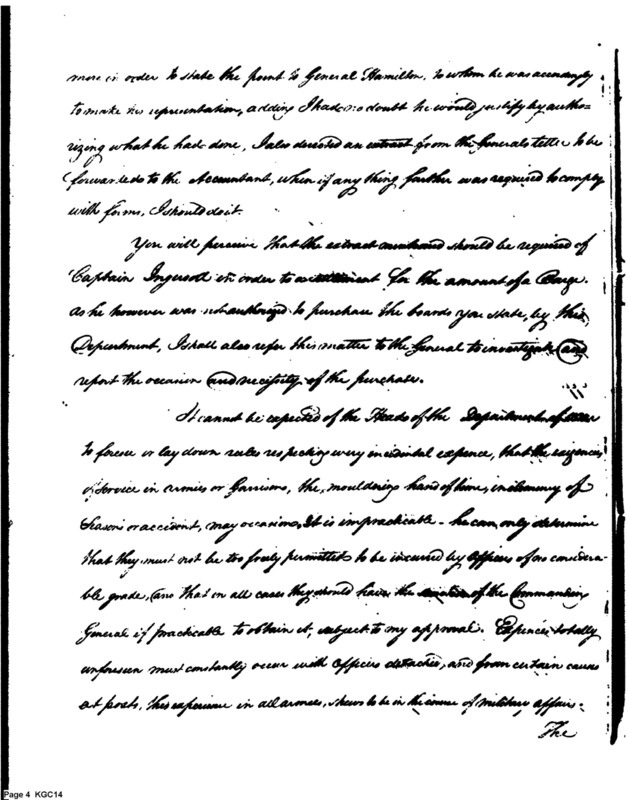 more in order to state the point to General Hamilton, to whom he was accordingly
to make his representation, adding I had no doubt he would justify by autho-
rizing what he had done, I also directed an extract from the Generals letter to be
forwarded to the Accountant, when if any thing further was required to comply
with forms, I should do it.
You will perceive that the extract should be required of
Captain Ingersoll in order to a for the amount of a Barge.
as he however was not authorized to purchase the boards you state, by this
Department, I shall also refer this matter to the General to investigate and
report the occasion and necessity of the purchase.
It cannot be expected of the Heads of the Department of War
to foresee or lay down rules respecting every incidental expence, that the exigencies
of service in armies or Garrisons, the, mouldering hand of time, inclemency of
Seasons or accident, may occasion, It is impracticable - he can, only determine
that they must not be too freely permitted to be incurred by officers of no considera-
ble grade, and that in all cases they should have the of the Commanding
General if practicable to obtain it, subject to my approval. Expences totally
unforeseen must constantly occur with Officers detached, and from certain causes
at posts, this experience in all armies, shews to be in the course of military affairs.
The
Page 4 KGC14